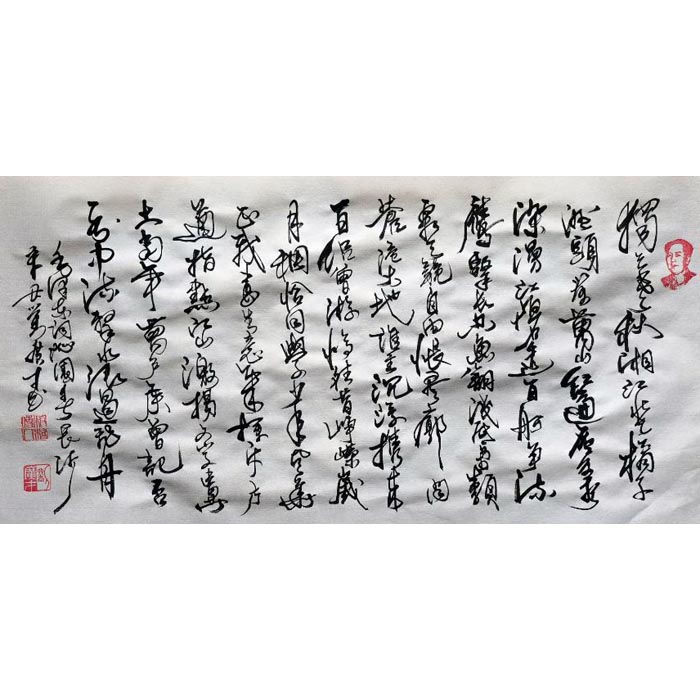 獨立寒秋湘江北去橘子
洲頭看萬山紅遍層林盡
染漫江碧透百舸争流
鷹擊長空魚翔淺底萬類
霜天競自由悵寥廓問
蒼茫大地誰主沉浮攜來
百侣曾游憶往昔崢嶸歲
月稠恰同學少年風華
正茂書生意氣揮斥方
遒指點江山激揚文字糞
土當年萬户侯曾記否
到中流擊水浪遏飛舟
毛澤東詞沁園春長沙
辛丑